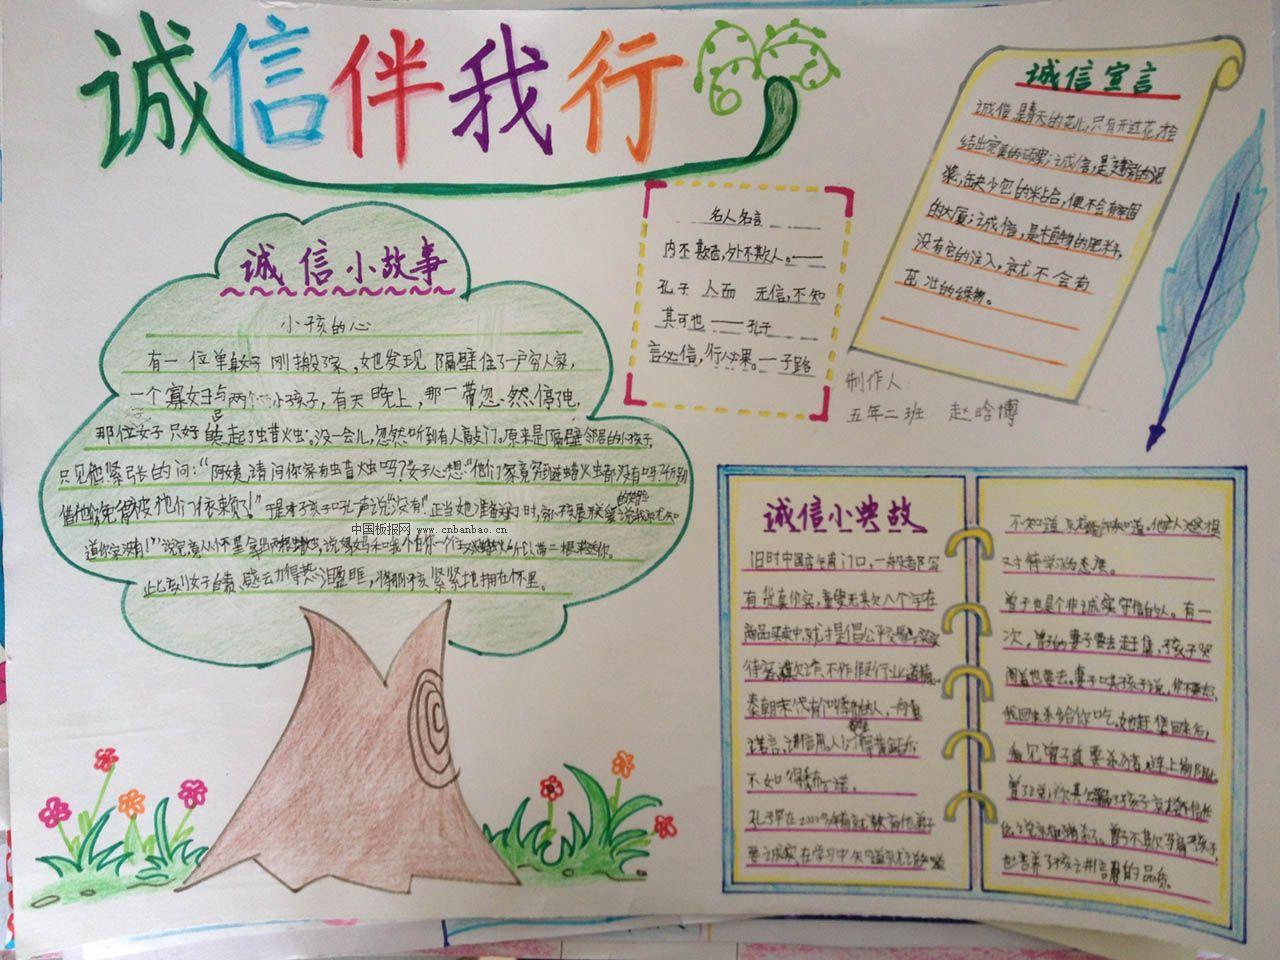 诚信伴我行
诚信宣言
诚信,是春天的花儿,只有开过花,才会
结出完美的硕果;诚信,是建
浆,缺少它的粘合,便不会有牢固
的大厦;诚信,是植物的肥料,
没有它的注入,就不会有
茁壮的绿物。
名人名言
内不欺己,外不欺人。——
孔子 人而 无信,不知
其可也——孔子
言必信,行必果。—子路
制作人
五年二班 赵晗博
诚信小故事
小孩的心
有一位单身女子刚搬了家,她发现隔壁住了一户穷人家,
一个寡妇与两个小孩子,有天晚上,那一带忽然停了电,
那位女子只好点起了蜡烛。没一会儿,忽然听到有人敲门。原来是隔壁邻居的小孩子,
只见他紧张的问:“阿姨,请问你家有蜡烛吗?女子心想:“他们家竟穷到连蜡烛都没有吗?千万别
借他们,免得被他们依赖了!”于是对孩子吼一声说“没有!”正当她准备关门时,
中国板报网 www.cnbanbao.cn
道你家没有!”说完,竟从怀里拿出两根蜡烛,说:妈妈和我怕你一个住 所以带二根来送你。
此刻女子自责、感动得热泪盈眶,将那小孩紧紧地拥在怀里。
诚信小典故
旧时中国店铺门口,一般都写
有货真价实,童叟无欺八个字在
商品买卖中,就才提倡公平交易
待客 欺诈、不作假行业道德。
秦朝末代有 人,一向重
诺言,讲信用。人们 黄金百
不如得季布一诺。
孔子早在2000多年前就教育他弟子
要诚实,在学习中知道就说知道
不知道就说不知道。他认为这才是
对待学习的态度。
曾子也是个非诚实守信的人。有一
次,曾子的妻子要去赶集,孩子哭
闹着也要去。妻子哄孩子说,你不要去,
我回来杀猪给你吃。她赶集回来后,
看见曾子真要杀猪,连上前阻止。
也培养了孩子讲信用的品质。